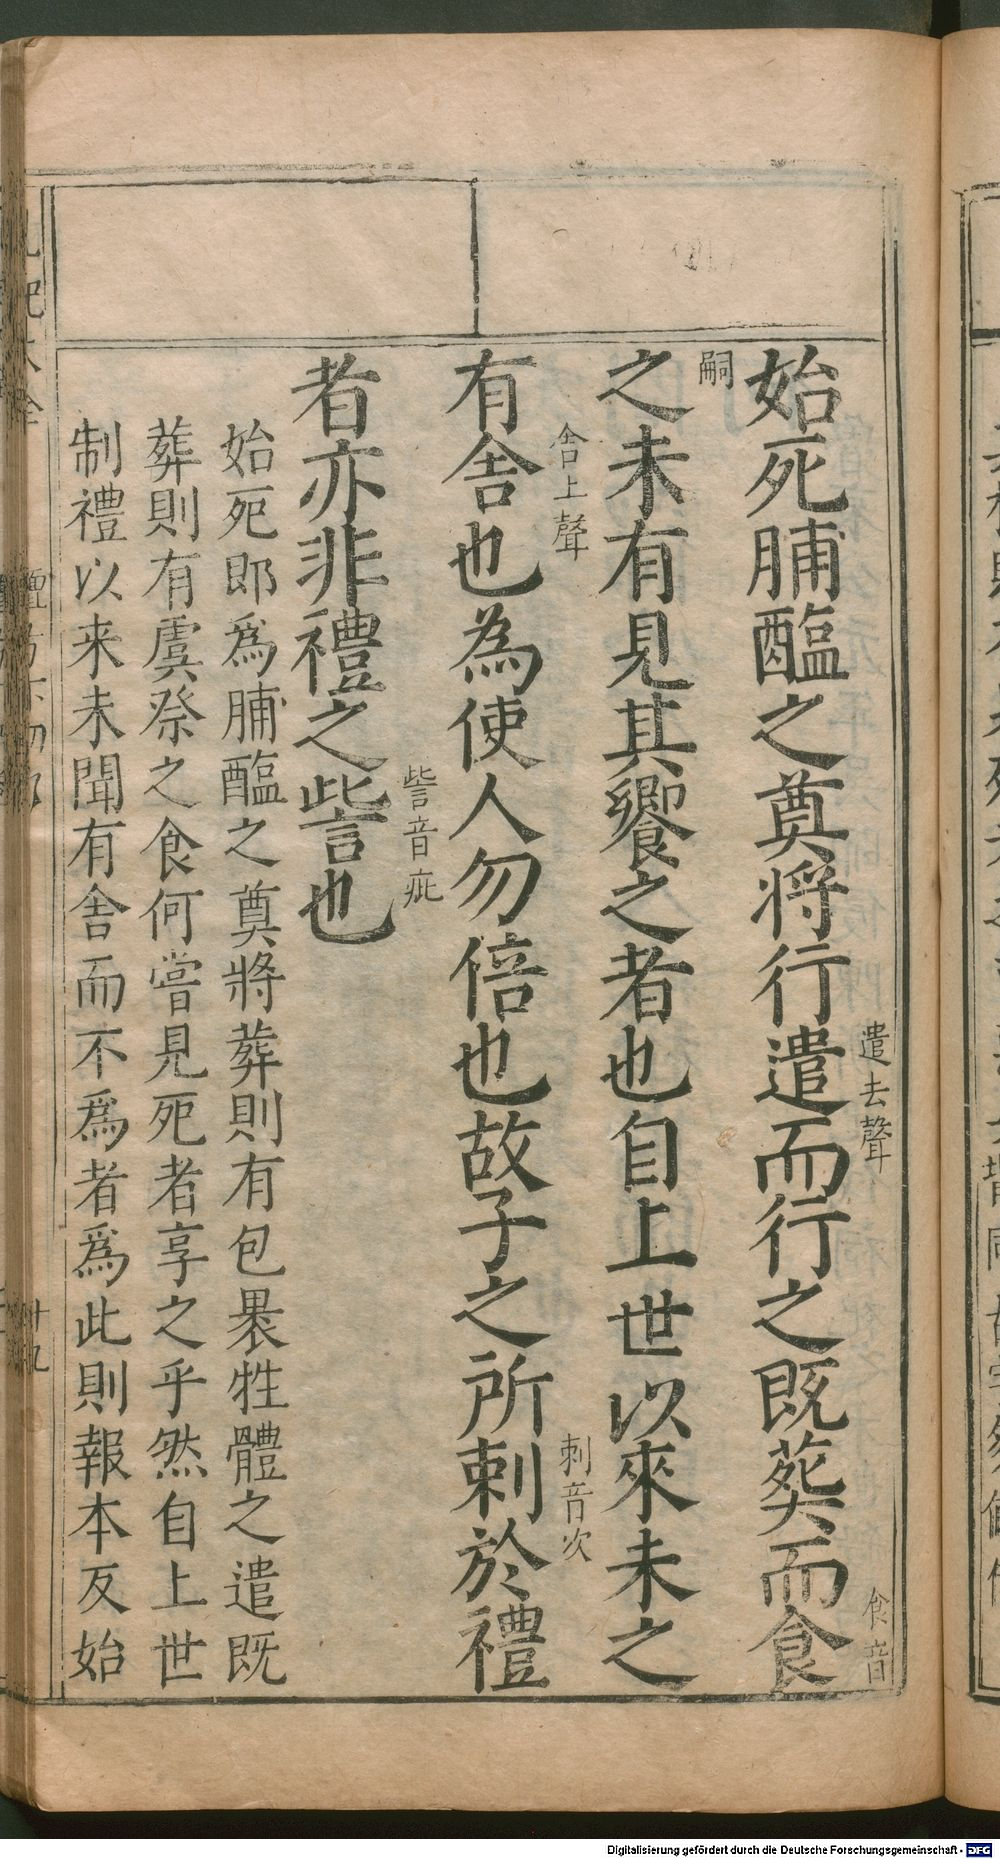 始死脯醢之奠将行遣而行之既葬而食
遣去聲
食音
嗣
之未有見其饗之者也自上世以來未之
有舍也為使人勿倍也故子之所刺於禮
舍上聲
刺音次
者亦非禮之訾也
訾音疵
始死即爲脯醢之奠將葬則有包褁牲體之遣既
葬則有虞祭之食何嘗見死者享之乎然自上世
制禮以来未聞有舍而不爲者爲此則報本反始
Digitalisierung gefördert durch die Deutsche Forschungsgemeinschaft - DFG